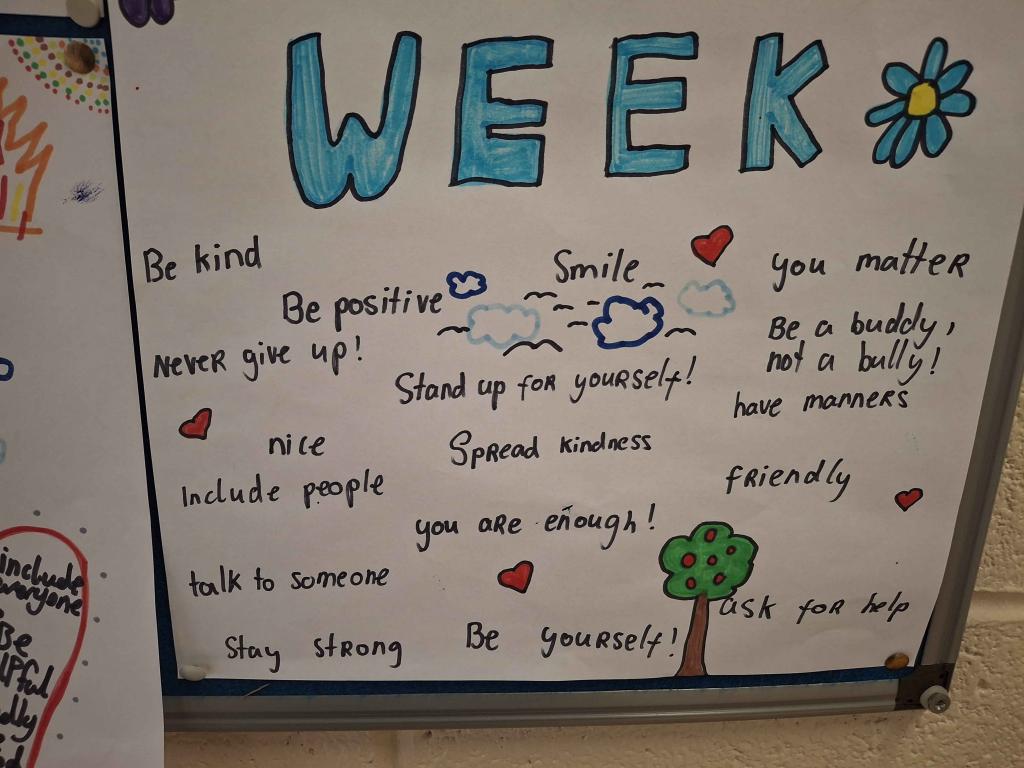 WEEK
Be kind
Smile
you matter
Be positive
Be a buddy,
not a bully!
Never give up!
Stand up for yourself!
have manners
nice
Spread kindness
friendly
Include people
you are enough!
talk to someone
ask for help
Stay strong
Be yourself!
include
everyone
Be